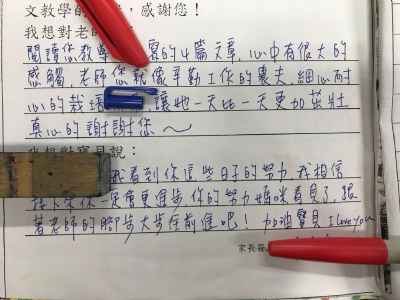 文教學的 感謝您！
我想對老師
閱讀您教學 的4篇文章,心中有很大的
感觸,老師您就像辛勤工作的農夫,細心耐
心的栽培 讓他一天比一天更加茁壯
真心的謝謝您～
我想對寶貝說：
我看到你這些日子的努力,我相信
接下來你一定會更進步,你的努力媽咪看見了,跟
著老師的腳步大步往前進吧! 加油寶貝 I love you
家長簽